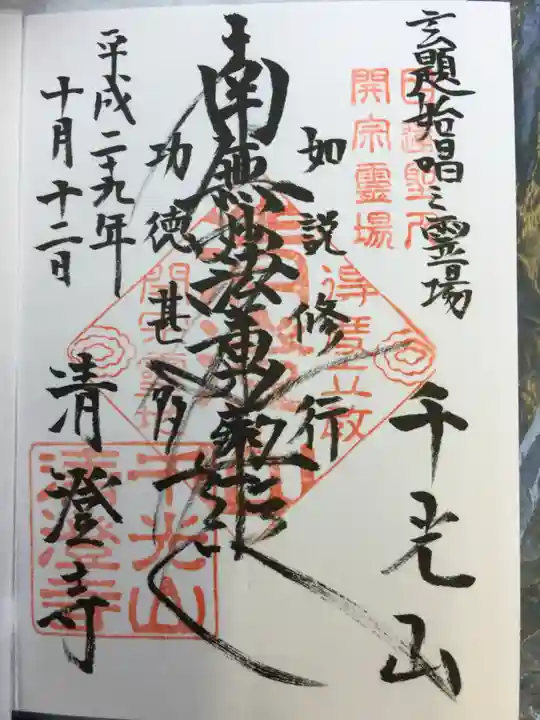 玄題始唱之霊場
千光山
如説修行
南無妙法蓮華経
功徳甚多
平成二十九年
十月十二日
清澄寺
開宗霊場
千光山
清澄寺